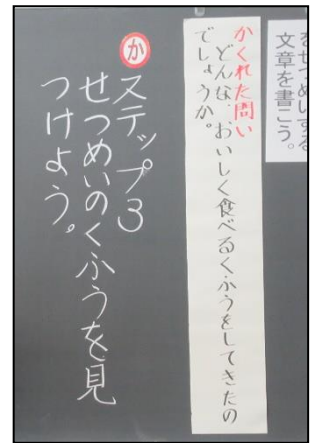 るせつめいする
文章を書こう。
かくれた問い
どんな、おいしく食べるくふうをしてきたの
でしょうか。
か
ステップ3
せつめいのくふうを見
つけよう。